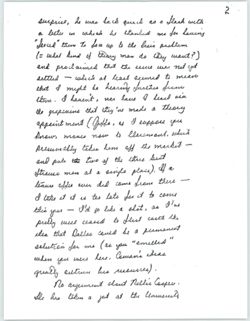 2
surprise, he was back quick as a flash with
a letter in which he thanked me for having
"forced" them to face up to the basic problem
(= what kind of theory man do they want?)
and proclaimed that the issue was not yet
settled — which at least seemed to mean
that I might be hearing further from
them. I haven't, nor have I heard via
the grapevine that they've made a theory
appointment (Jaffa, as I suppose you
know, moves now to Claremont, which
presumably takes him off the market —
and puts two of the three best
Strauss men at a single place). If a
tenure offer ever did come from there —
I take it it is too late for it to come
this year — I'd go like a shot, as I've
pretty much ceased to
idea that Dallas could be a permanent
solution for me (as you "smelled"
when you were here.
greatly
No argument about Nellie Cooper.
She has taken a job at the University